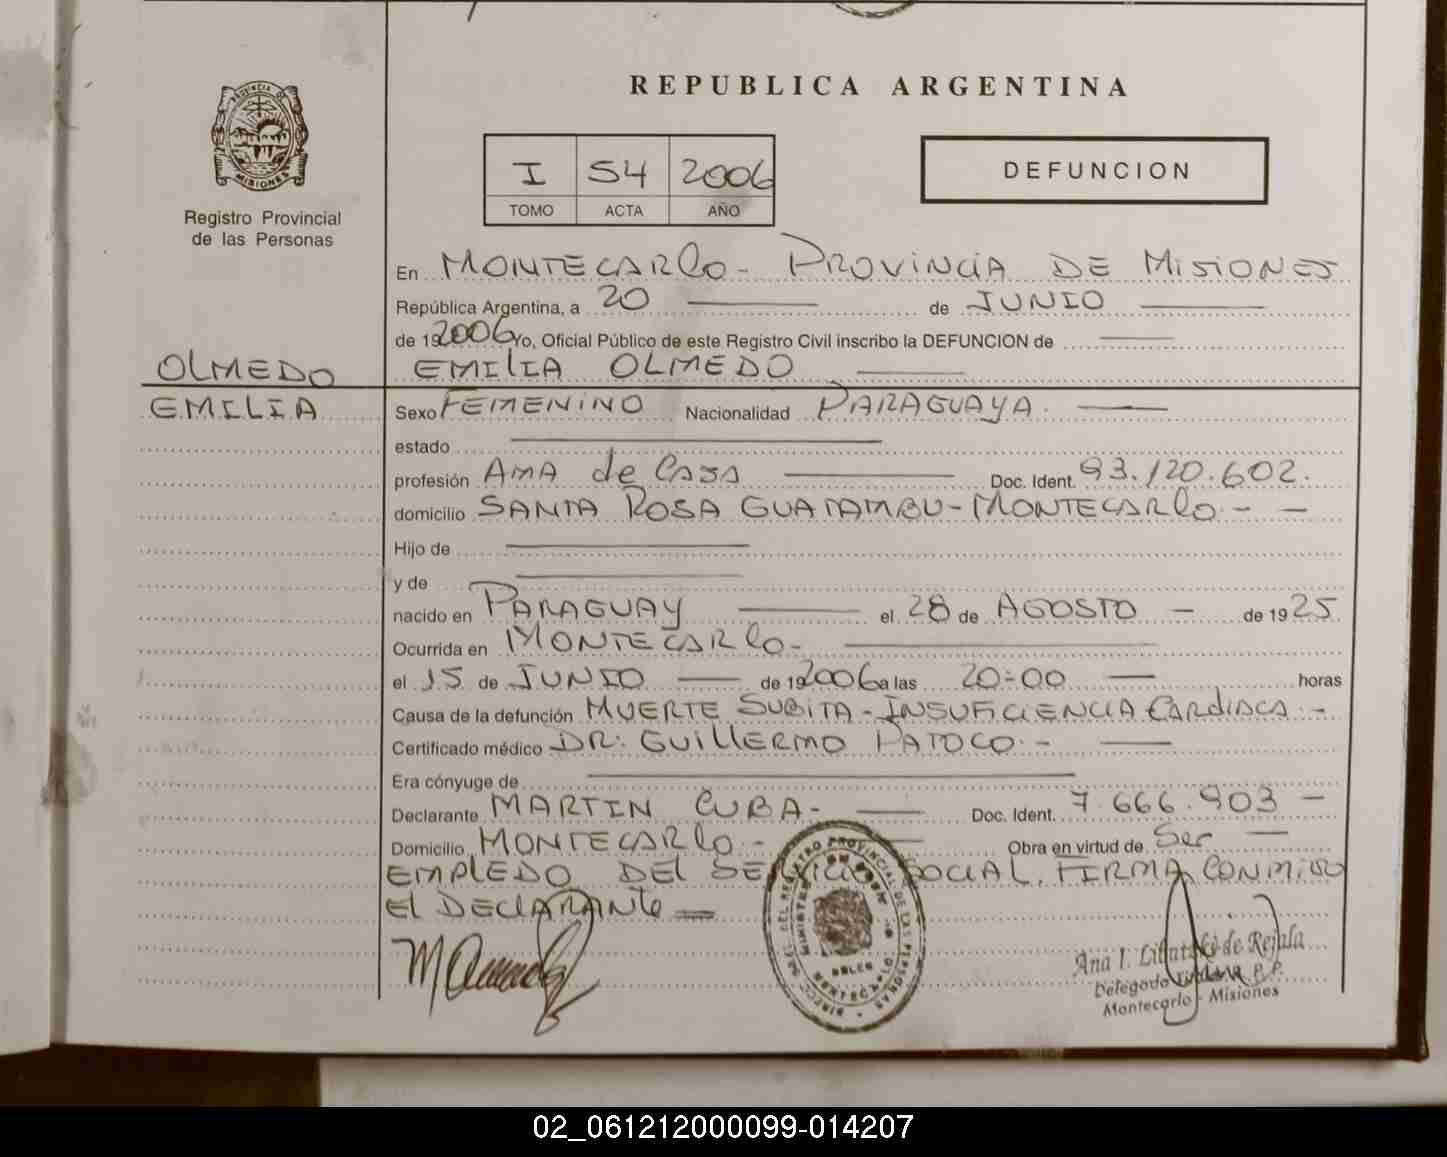 REPUBLICA ARGENTINA
PROVINCIA DE
MISIONES
Registro Provincial
de las Personas
I 54 2006
TOMO ACTA AÑO
DEFUNCION
En MONTECARLO - PROVINCIA DE MISIONES
República Argentina, a 20 de JUNIO
de 19 2006 Yo, Oficial Público de este Registro Civil inscribo la DEFUNCION de
OLMEDO EMILIA OLMEDO
EMILIA Sexo FEMENINO Nacionalidad PARAGUAYA
estado
profesión AMA de CASA Doc. Ident. 93.120.602.
domicilio SANTA ROSA GUATAMBU - MONTECARLO - -
Hijo de
y de
nacido en PARAGUAY el 28 de AGOSTO - de 19 25
Ocurrida en MONTECARLO -
el 15 de JUNIO de 19 2006 a las 20:00 horas
Causa de la defunción MUERTE SUBITA - INSUFICIENCIA CARDIACA -
Certificado médico DR. GUILLERMO PATOCO -
Era cónyuge de
Declarante MARTIN CUBA - Doc. Ident. 7.666.903 -
Domicilio MONTECARLO - Obra en virtud de Ser
EMPLEDO DEL SERVICIO SOCIAL. FIRMA CONMIGO
El DEClARANTe
Ana I. de Rejala
Delegado Titular R. P.
Montecarlo - Misiones
02_061212000099-014207